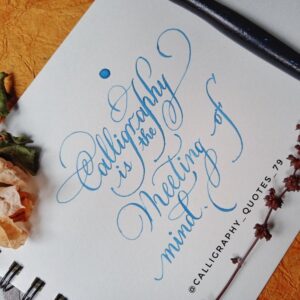 Calligraphy
is the
Meeting of
mind.
@CALLIGRAPHY_QUOTES_79